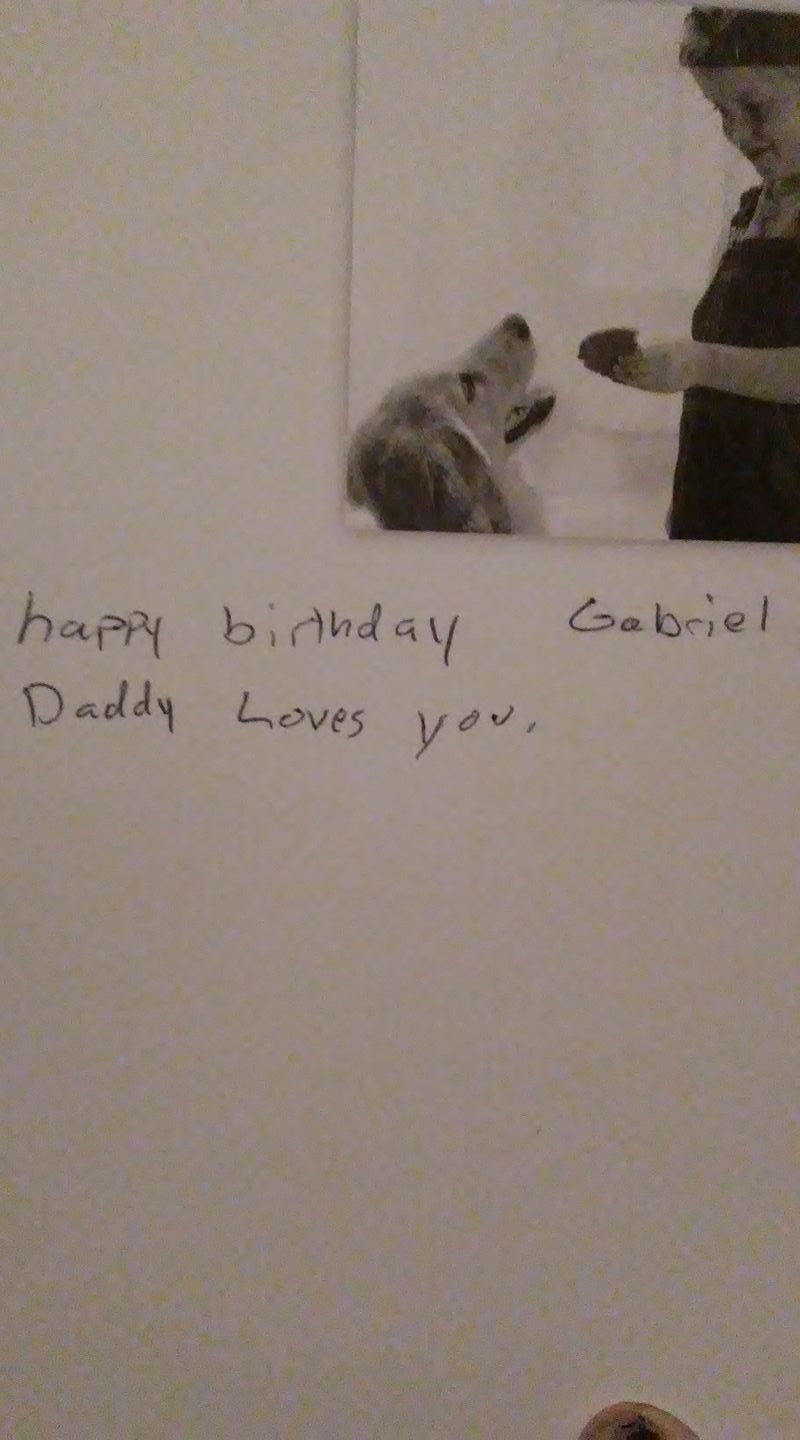 happy birthday Gabriel
Daddy Loves you.